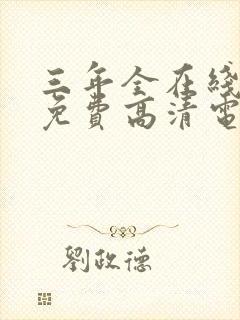 三年全在綫
免費高清電
劉政德